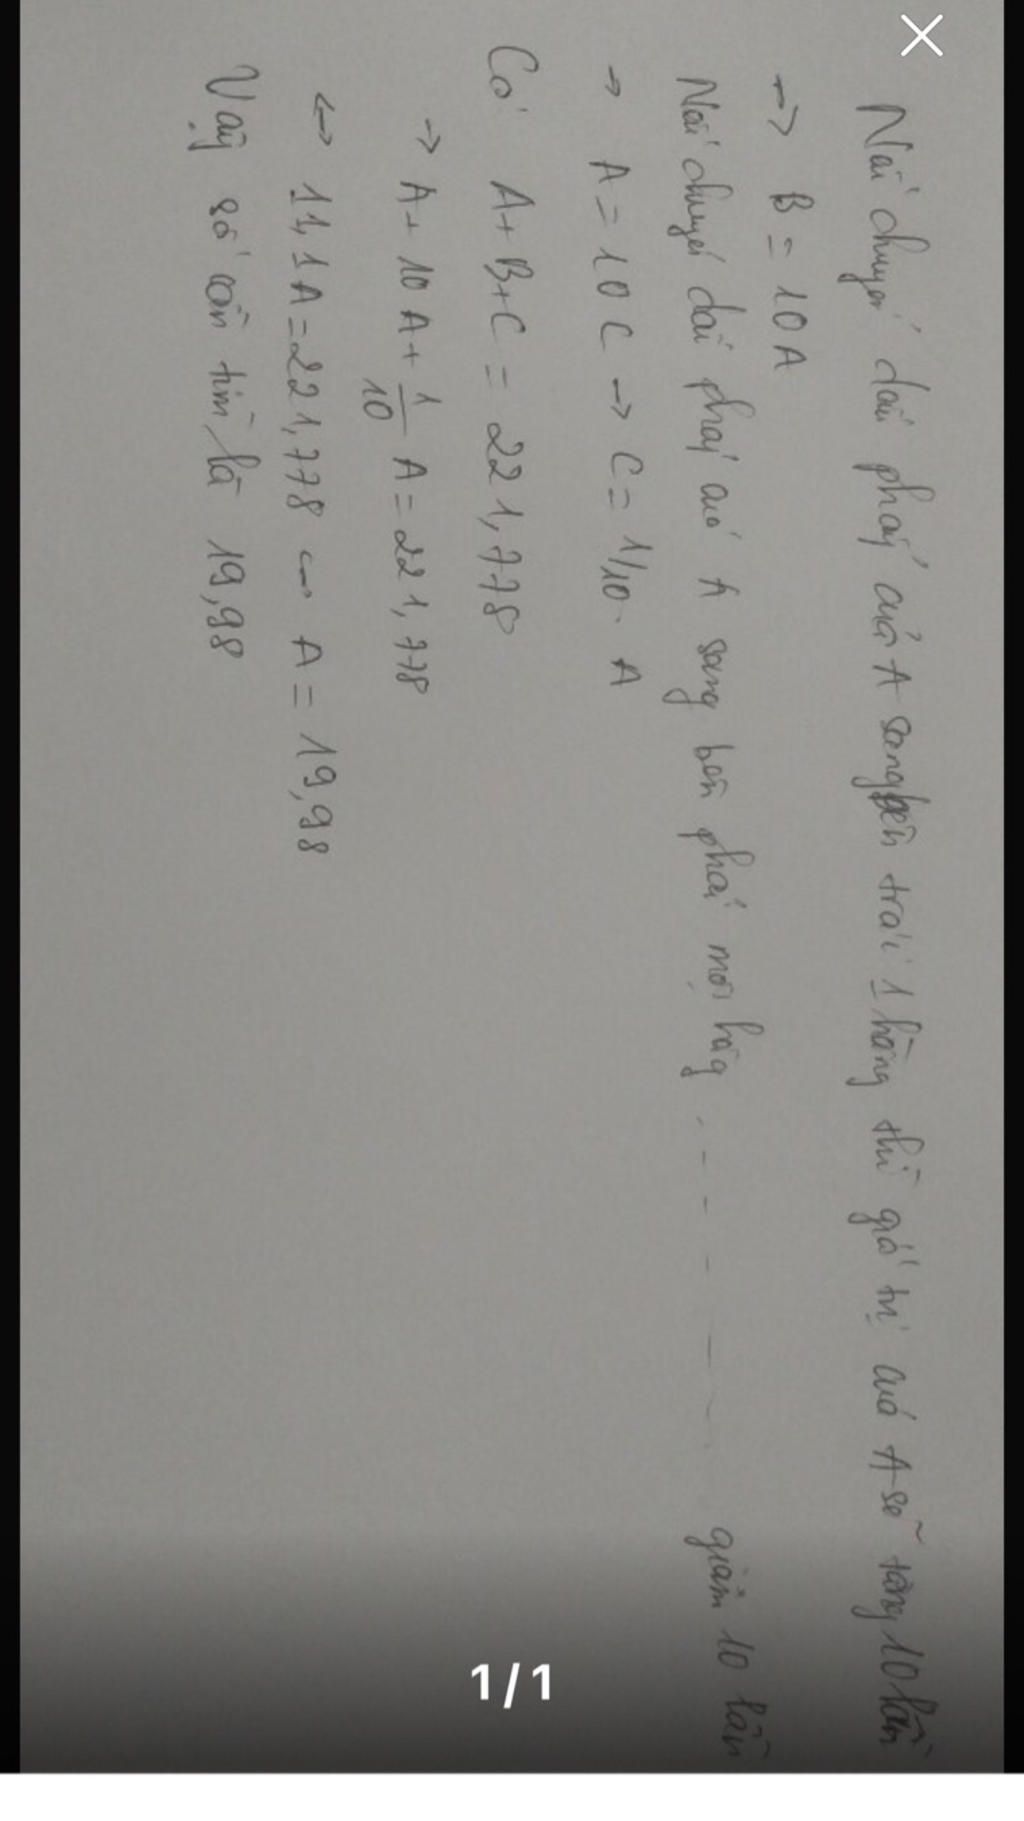 Nếu chuyển dấu phẩy của A sang bên trái 1 hàng thì giá trị của A sẽ tăng 10 lần
→ B = 10A
Nếu chuyển dấu phẩy của A sang bên phải một hàng - - - - — - giảm 10 lần
→ A = 10C → C = 1/10. A
Có A + B + C = 221,778
→ A + 10A + 1/10 A = 221,778
↔ 11,1A = 221,778 ↔ A = 19,98
Vậy số cần tìm là 19,98
1/1